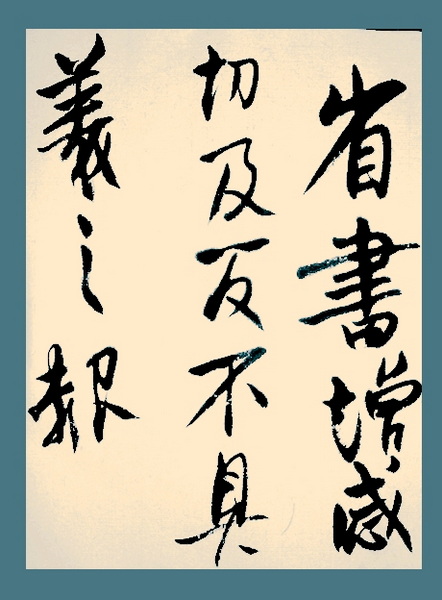 省書增感
切及反不具
羲之報